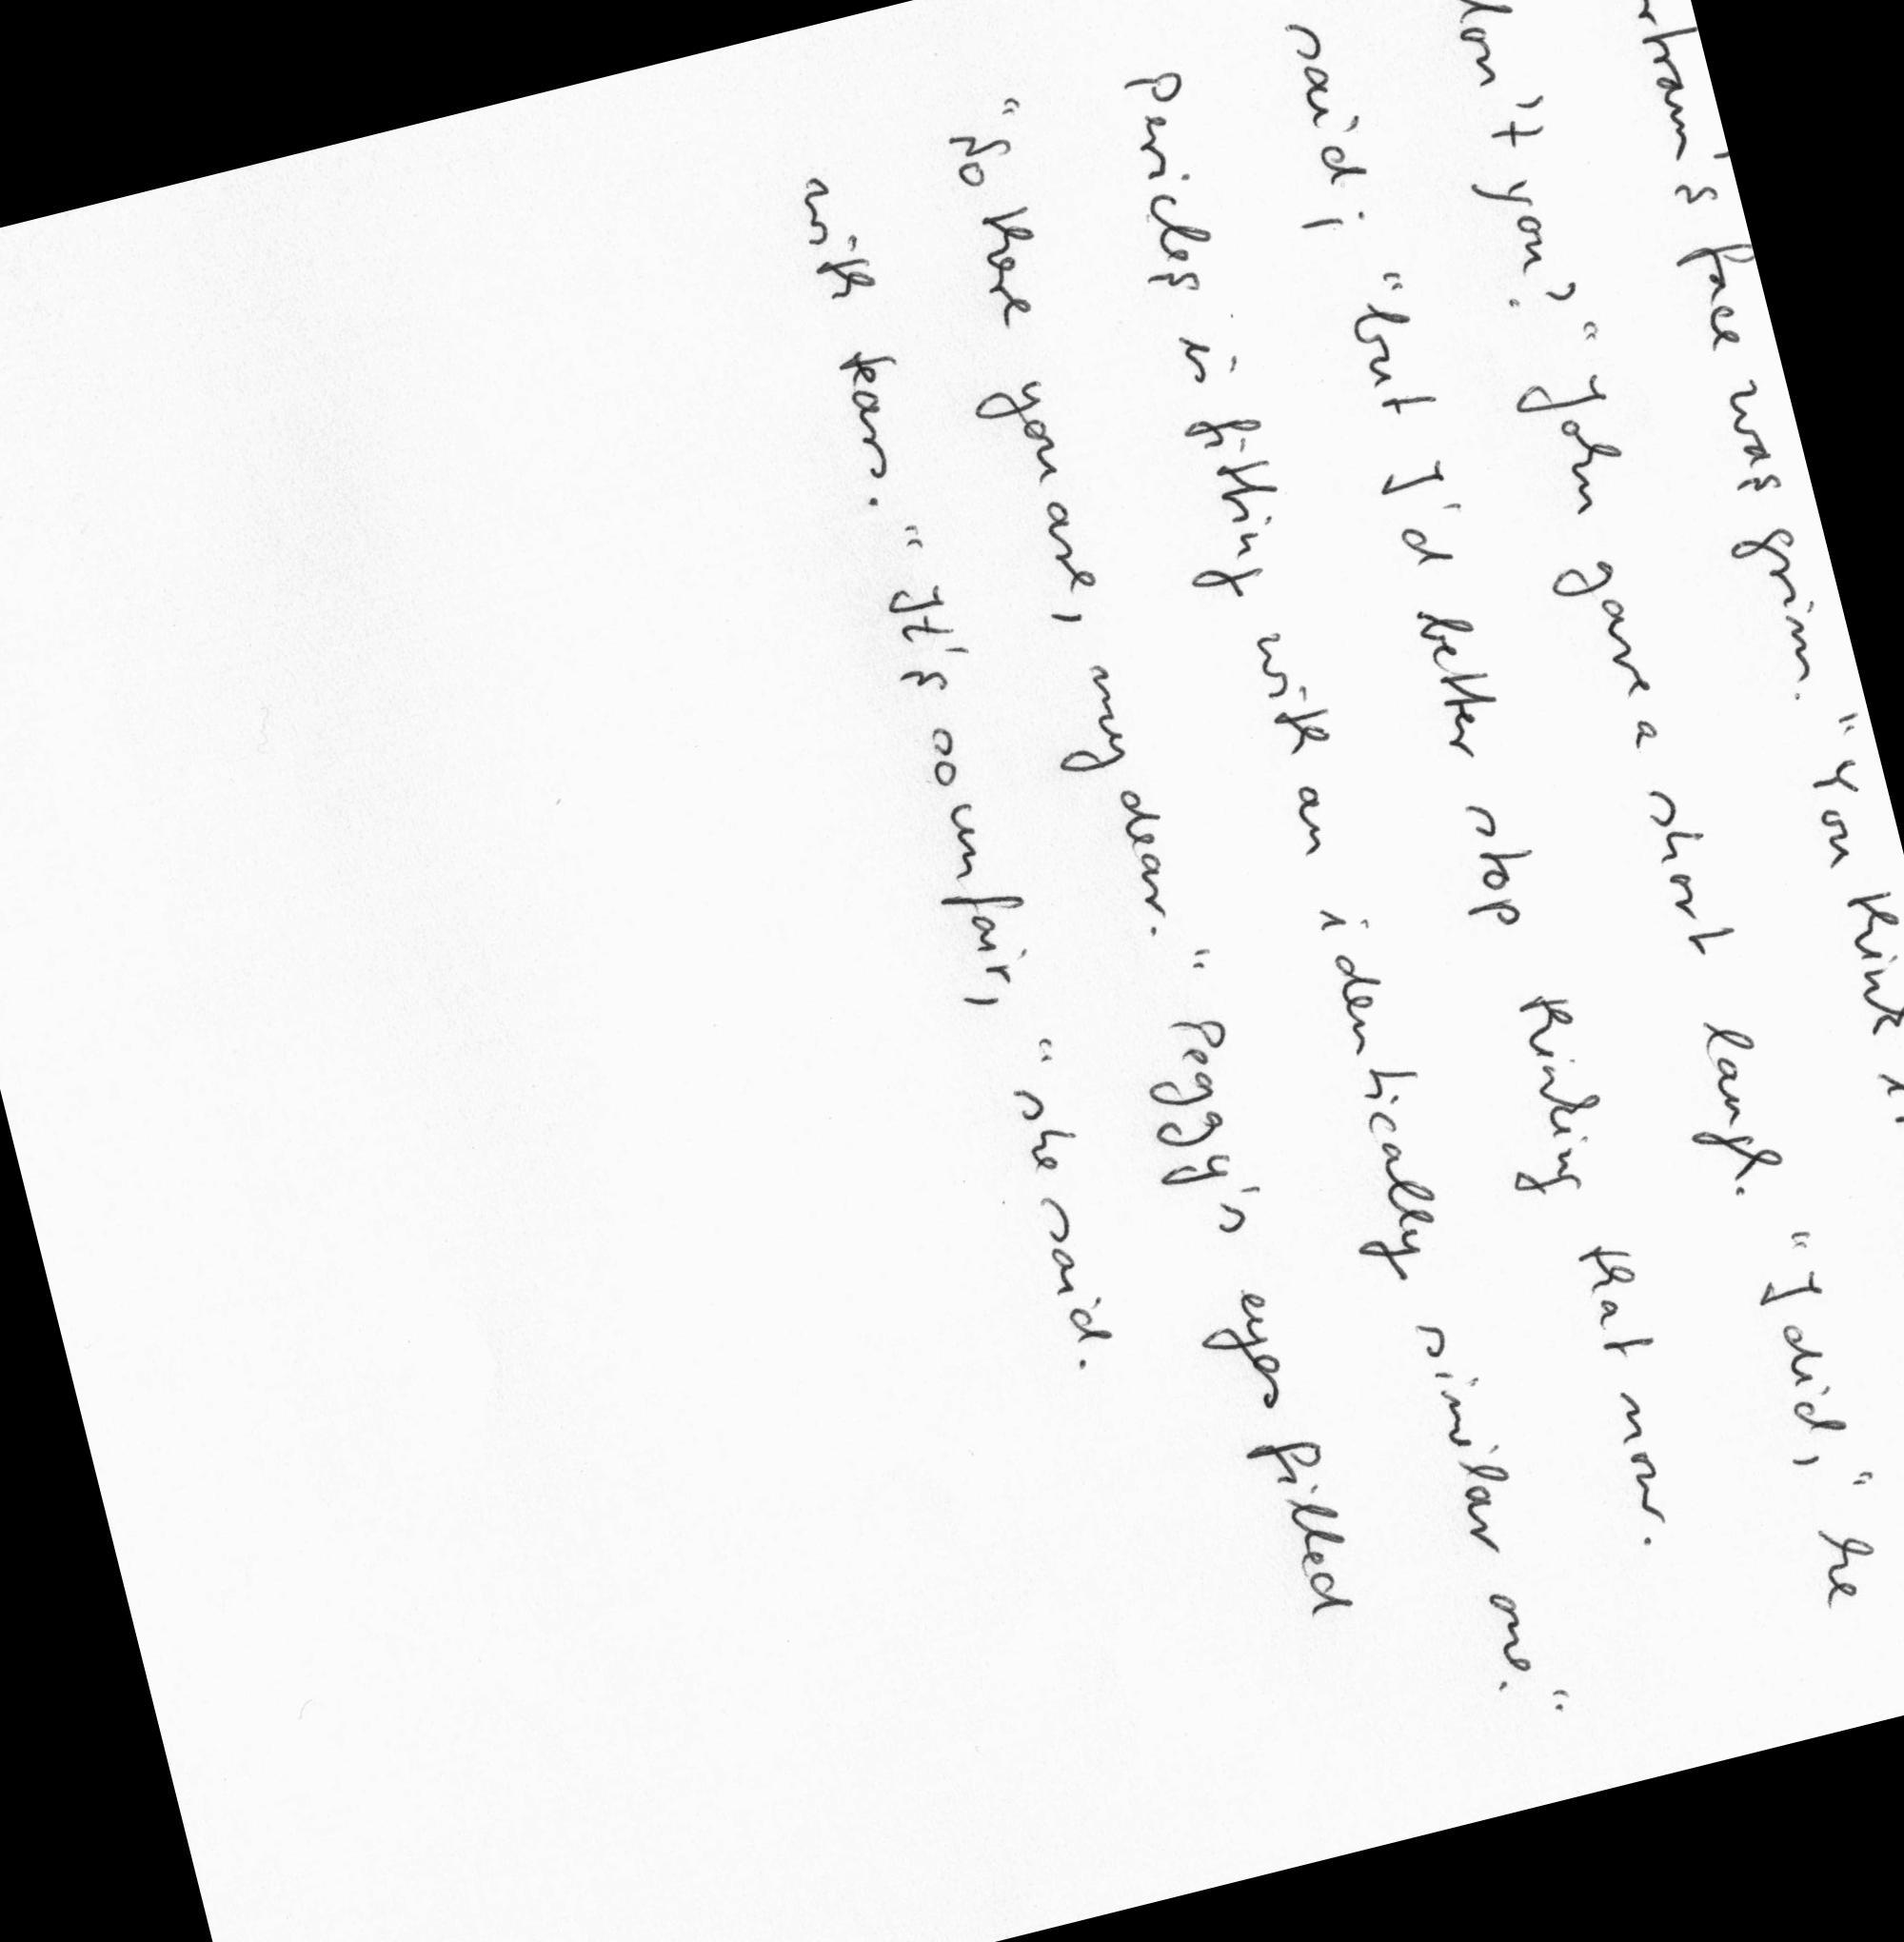 rtram's face was grim. "You think
don't you." John gave a short laugh. "I did," he
said; "but I'd better stop thinking that now.
Pericles is fitting with an identically similar one."
"So there you are, my dear." Peggy's eyes filled
with tears. "It's so unfair," she said.